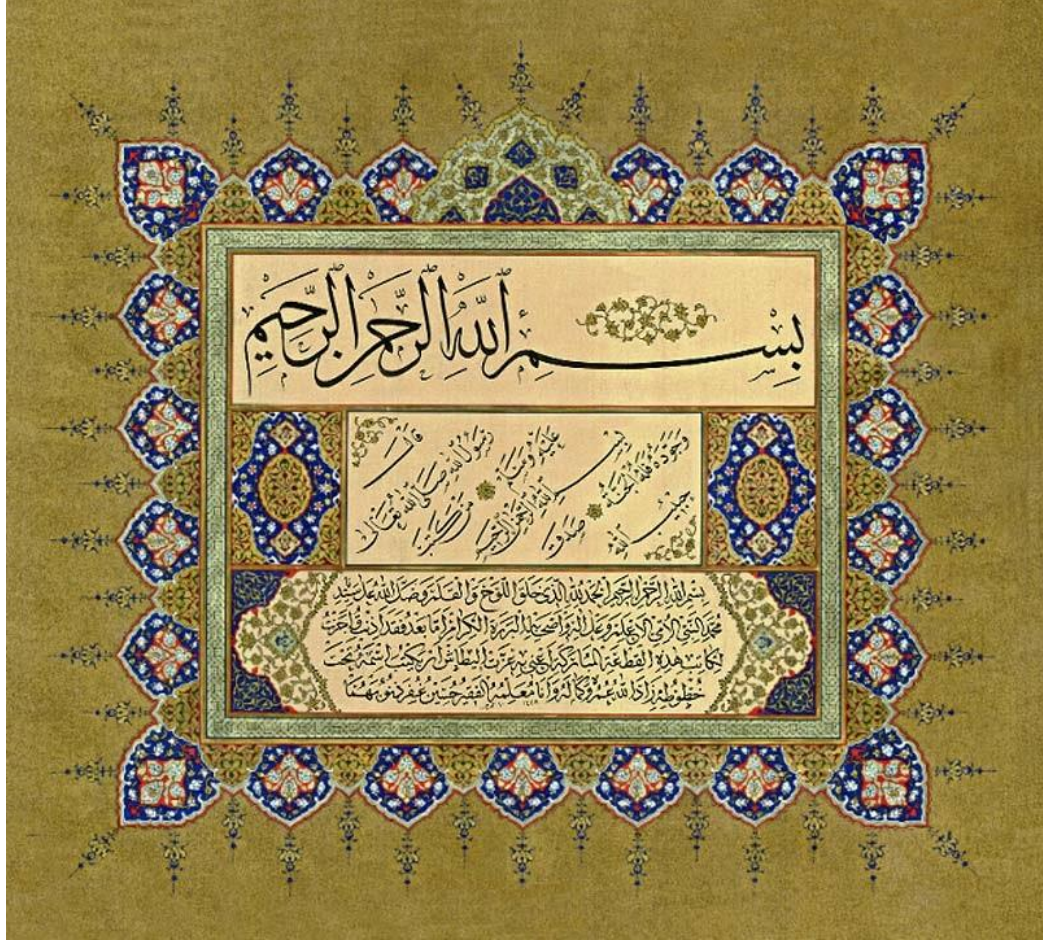 بِسْمِ اللّٰهِ الرَّحْمٰنِ الرَّحِيمِ
قال
رسول الله صلى الله تعالى
عليه وسلم من كتب
بسم الله الرحمن الرحيم
وجوده فله الجنة صدق
حبيب الله
بسم الله الرحمن الرحيم الحمد لله الذي خلق اللوح والقلم وصلى الله على
محمد النبي الامي وعلى آله واصحابه البررة الكرام اما بعد فقد اذنت واجزت
لكاتب هذه القطعة المباركة اعني به عزت البطاش ان يكتب اسمه تحت
خطوطه زاد الله عمره وكماله وانا معلمه الفقير حسين غفر ذنوبهما